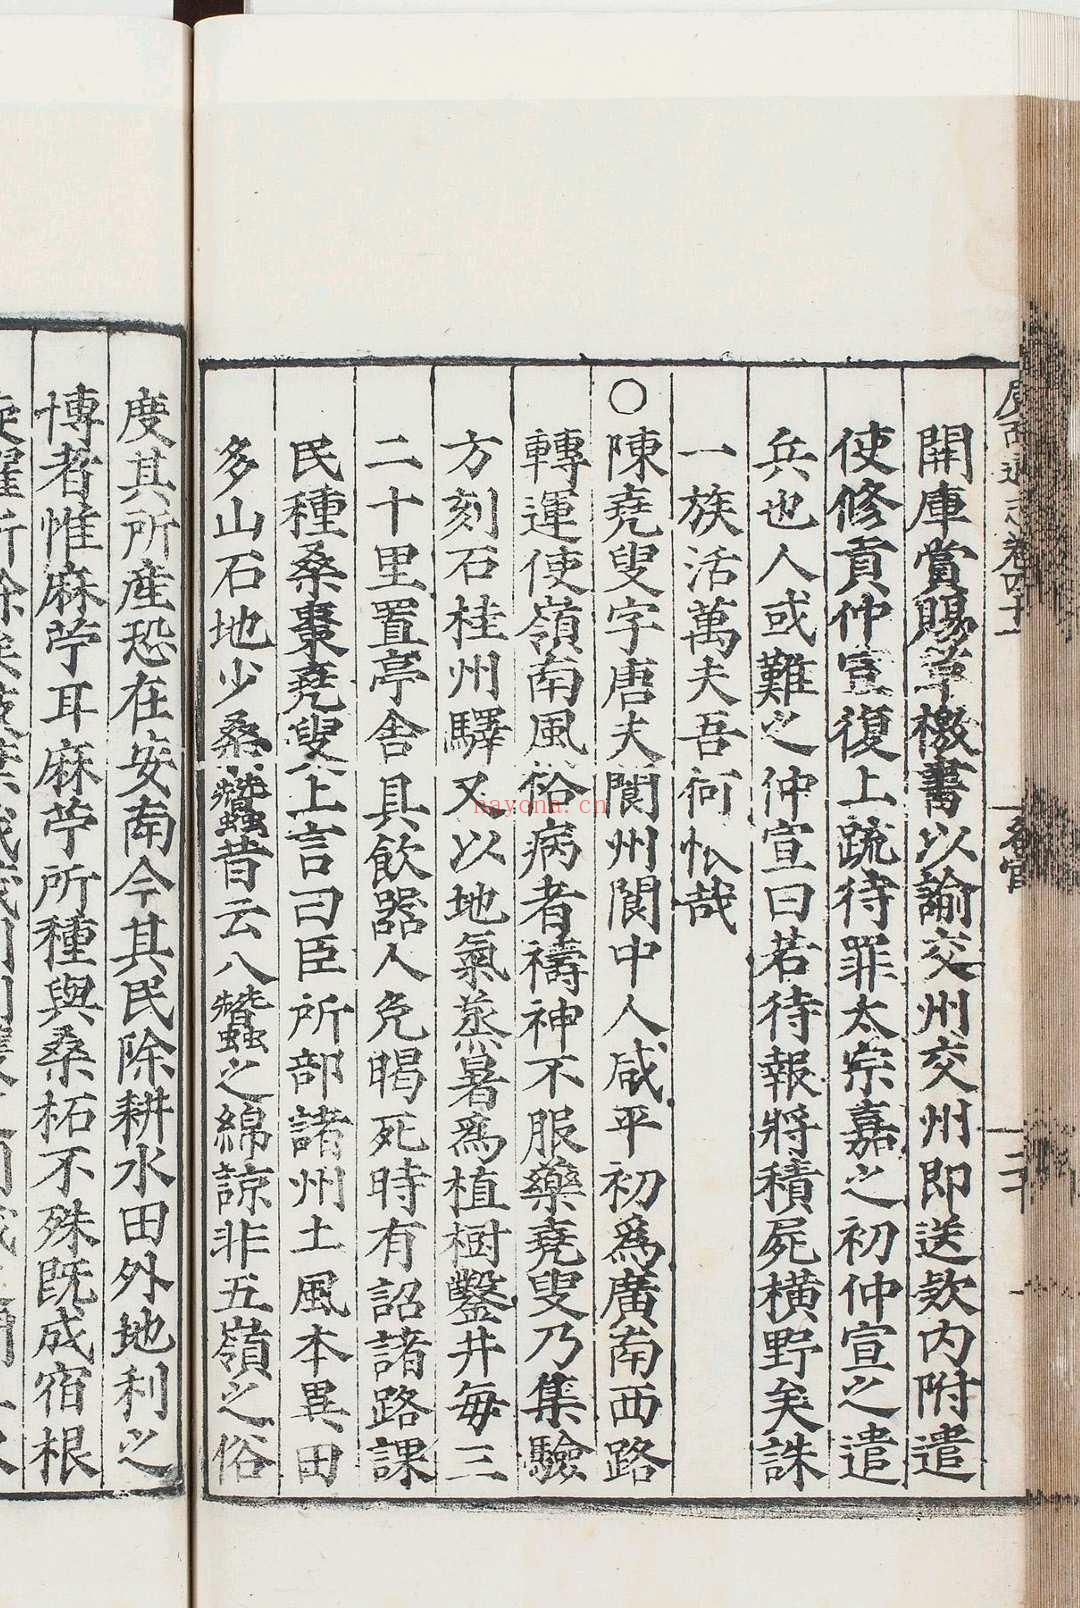 開庫賞賜草檄書以諭交州交州即送款內附遣
使修貢仲宣復上疏待罪太宗嘉之初仲宣之遣
兵也人或難之仲宣曰若待報將積屍橫野矣誅
一族活萬夫吾何恡哉
○陳堯叟字唐夫閬州閬中人咸平初爲廣南西路
轉運使嶺南風俗病者禱神不服藥堯叟乃集驗
方刻石桂州驛又以地氣蒸暑爲植樹鑿井每三
二十里置亭舍具飲器人免暍死時有詔諸路課
民種桑棗堯叟上言曰臣所部諸州土風本異田
多山石地少桑蠶昔云八蠶之綿諒非五嶺之俗
度其所產恐在安南今其民除耕水田外地利之
博者惟麻苧耳麻苧所種與桑柘不殊既成宿根
nayona.cn